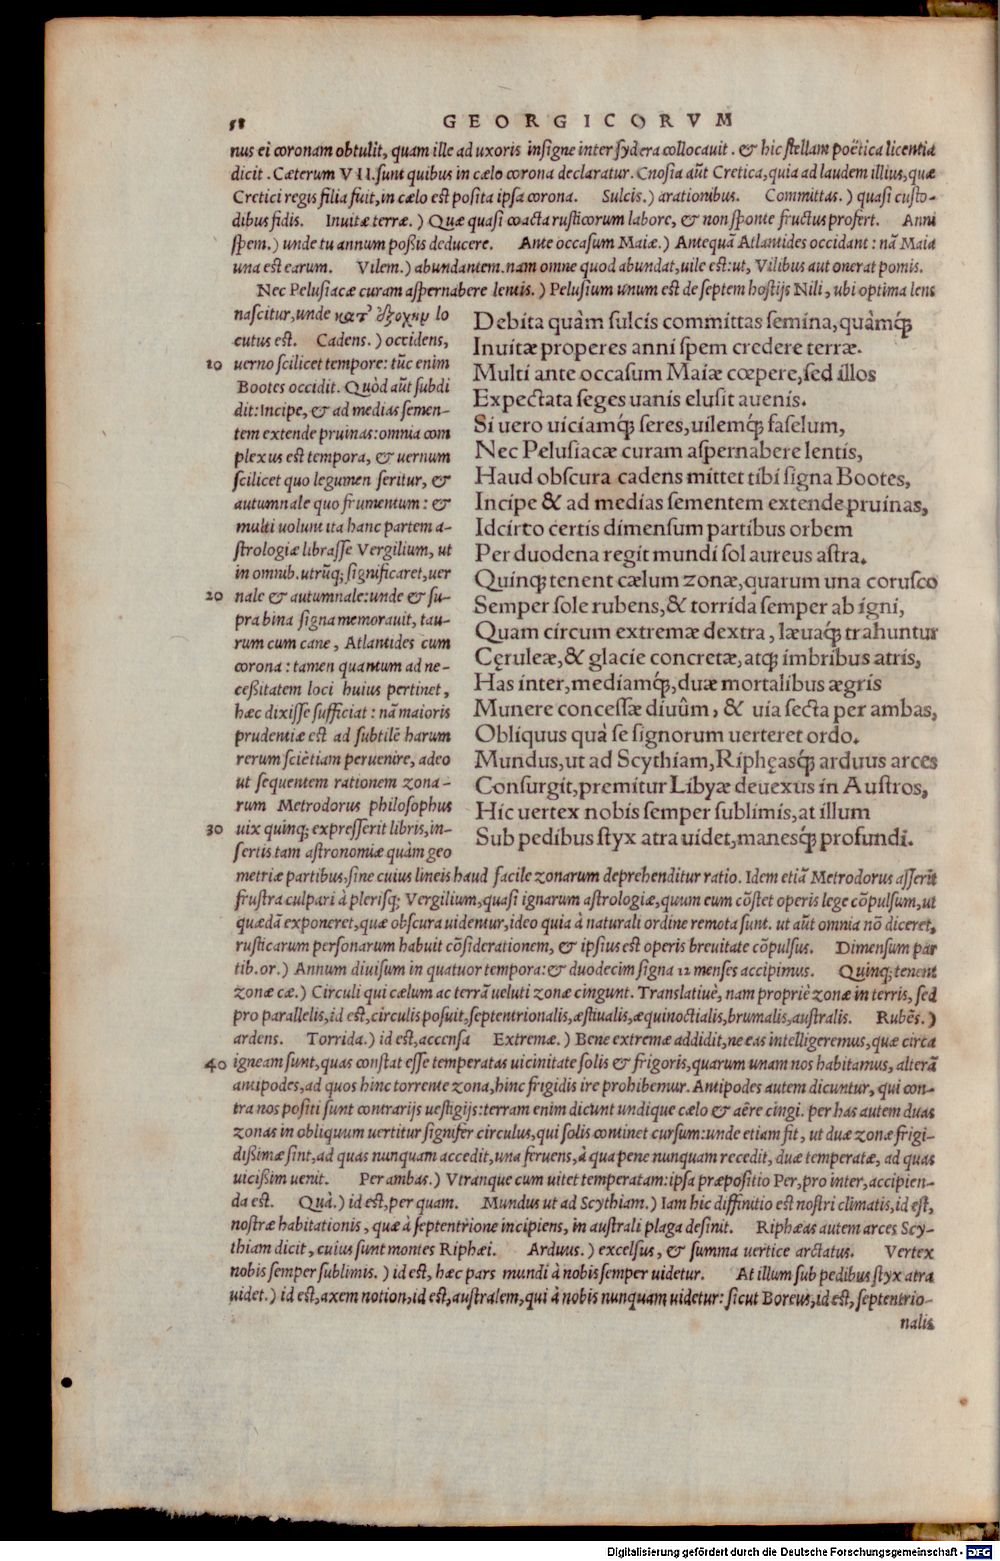 58 GEORGICORVM
nus ei coronam obtulit, quam ille ad uxoris insigne inter sydera collocauit. & hic stellam poëtica licentia
dicit. Cæterum VII. sunt quibus in cælo corona declaratur. Cnosia aût Cretica, quia ad laudem illius, quæ
Cretici regis filia fuit, in cælo est posita ipsa corona. Sulcis.) arationibus. Committas.) quasi custo-
dibus fidis. Inuitæ terræ.) Quæ quasi coacta rusticorum labore, & non sponte fructus profert. Anni
spem.) unde tu annum poßis deducere. Ante occasum Maiæ.) Antequã Atlantides occidant: nã Maia
una est earum. Vilem.) abundantem. nam omne quod abundat, uile est: ut, Vilibus aut onerat pomis.
Nec Pelusiacæ curam aspernabere lentis.) Pelusium unum est de septem hostijs Nili, ubi optima lens
nascitur, unde κατ' ἐξοχὴν lo
cutus est. Cadens.) occidens,
10 uerno scilicet tempore: tũc enim
Bootes occidit. Quòd aût subdi
dit: Incipe, & ad medias semen-
tem extende pruinas: omnia com
plexus est tempora, & uernum
scilicet quo legumen seritur, &
autumnale quo frumentum: &
multi uolunt ita hanc partem a-
strologiæ librasse Vergilium, ut
in omnib. utrũq; significaret, uer
20 nale & autumnale: unde & su-
pra bina signa memorauit, tau-
rum cum cane, Atlantides cum
corona: tamen quantum ad ne-
ceßitatem loci huius pertinet,
hæc dixisse sufficiat: nã maioris
prudentiæ est ad subtilẽ harum
rerum sciẽtiam peruenire, adeo
ut sequentem rationem zona-
rum Metrodorus philosophus
30 uix quinq; expresserit libris, in-
sertis tam astronomiæ quàm geo
Debita quàm sulcis committas semina, quàmq́;
Inuitæ properes anni spem credere terræ.
Multi ante occasum Maiæ cœpere, sed illos
Expectata seges uanis elusit auenis.
Si uero uiciamq́; seres, uilemq́; faselum,
Nec Pelusiacæ curam aspernabere lentis,
Haud obscura cadens mittet tibi signa Bootes,
Incipe & ad medias sementem extende pruinas,
Idcirto certis dimensum partibus orbem
Per duodena regit mundi sol aureus astra.
Quinq; tenent cælum zonæ, quarum una corusco
Semper sole rubens, & torrida semper ab igni,
Quam circum extremæ dextra, læuaq́; trahuntur
Cęruleæ, & glacie concretæ, atq; imbribus atris,
Has inter, mediamq́;, duæ mortalibus ægris
Munere concessæ diuûm, & uia secta per ambas,
Obliquus quà se signorum uerteret ordo.
Mundus, ut ad Scythiam, Riphęasq́; arduus arces
Consurgit, premitur Libyæ deuexus in Austros,
Hic uertex nobis semper sublimis, at illum
Sub pedibus styx atra uidet, manesq́; profundi.
metriæ partibus, sine cuius lineis haud facile zonarum deprehenditur ratio. Idem etiã Metrodorus asserit
frustra culpari à plerisq; Vergilium, quasi ignarum astrologiæ, quum eum cõstet operis lege cõpulsum, ut
quædã exponeret, quæ obscura uidentur, ideo quia à naturali ordine remota sunt. ut aût omnia nõ diceret,
rusticarum personarum habuit cõsiderationem, & ipsius est operis breuitate cõpulsus. Dimensum par
tib. or.) Annum diuisum in quatuor tempora: & duodecim signa 12 menses accipimus. Quinq; tenent
zonæ cæ.) Circuli qui cælum ac terrã ueluti zonæ cingunt. Translatiuè, nam propriè zonæ in terris, sed
pro parallelis, id est, circulis posuit, septentrionalis, æstiualis, æquinoctialis, brumalis, australis. Rubẽs.)
ardens. Torrida.) id est, accensa Extremæ.) Bene extremæ addidit, ne eas intelligeremus, quæ circa
40 igneam sunt, quas constat esse temperatas uicinitate solis & frigoris, quarum unam nos habitamus, alterã
antipodes, ad quos hinc torrente zona, hinc frigidis ire prohibemur. Antipodes autem dicuntur, qui con-
tra nos positi sunt contrarijs uestigijs: terram enim dicunt undique cælo & aëre cingi. per has autem duas
zonas in obliquum uertitur signifer circulus, qui solis continet cursum: unde etiam fit, ut duæ zonæ frigi-
dißimæ sint, ad quas nunquam accedit, una feruens, à qua pene nunquam recedit, duæ temperatæ, ad quas
uicißim uenit. Per ambas.) Vtranque cum uitet temperatam: ipsa præpositio Per, pro inter, accipien-
da est. Quà.) id est, per quam. Mundus ut ad Scythiam.) Iam hic diffinitio est nostri climatis, id est,
nostræ habitationis, quæ à septentrione incipiens, in australi plaga desinit. Riphæas autem arces Scy-
thiam dicit, cuius sunt montes Riphæi. Arduus.) excelsus, & summa uertice arctatus. Vertex
nobis semper sublimis.) id est, hæc pars mundi à nobis semper uidetur. At illum sub pedibus styx atra
uidet.) id est, axem notion, id est, australem, qui à nobis nunquam uidetur: sicut Boreus, id est, septentrio-
nalis
Digitalisierung gefördert durch die Deutsche Forschungsgemeinschaft - DFG